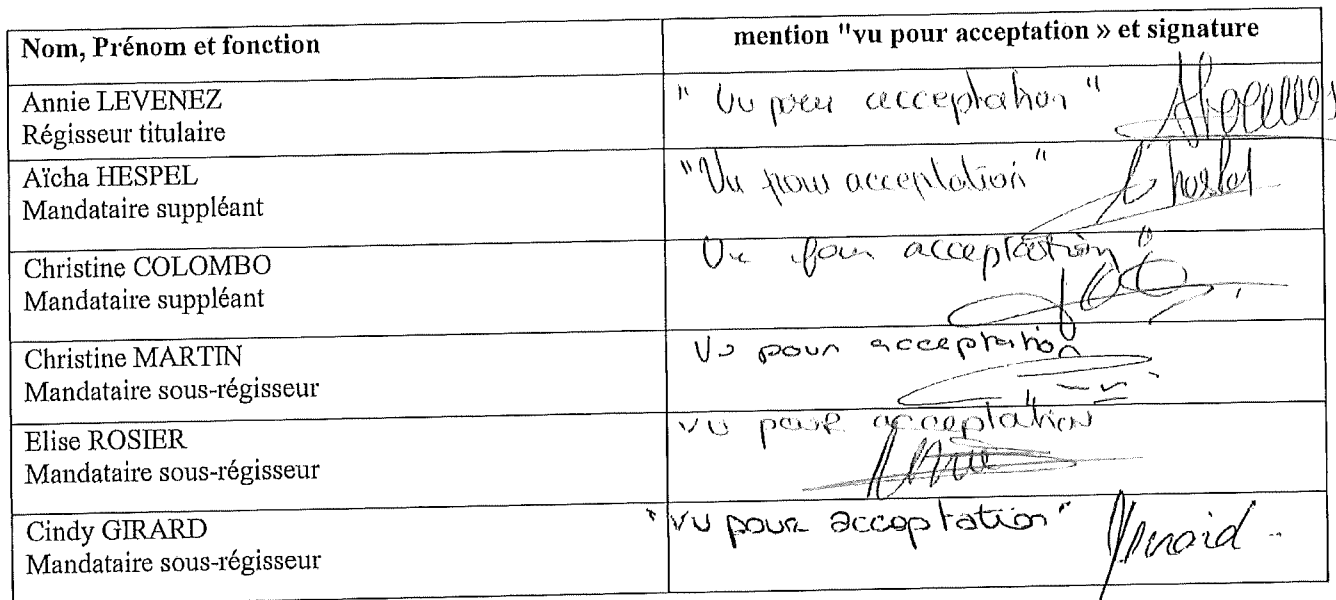 Nom, Prénom et fonction
mention "vu pour acceptation » et signature
Annie LEVENEZ
Régisseur titulaire
" Vu pour acceptation "
Aïcha HESPEL
Mandataire suppléant
"Vu pour acceptation"
Christine COLOMBO
Mandataire suppléant
Vu pour acceptation "
Christine MARTIN
Mandataire sous-régisseur
Vu pour acceptation
Elise ROSIER
Mandataire sous-régisseur
vu pour acceptation
Cindy GIRARD
Mandataire sous-régisseur
"vu pour acceptation"